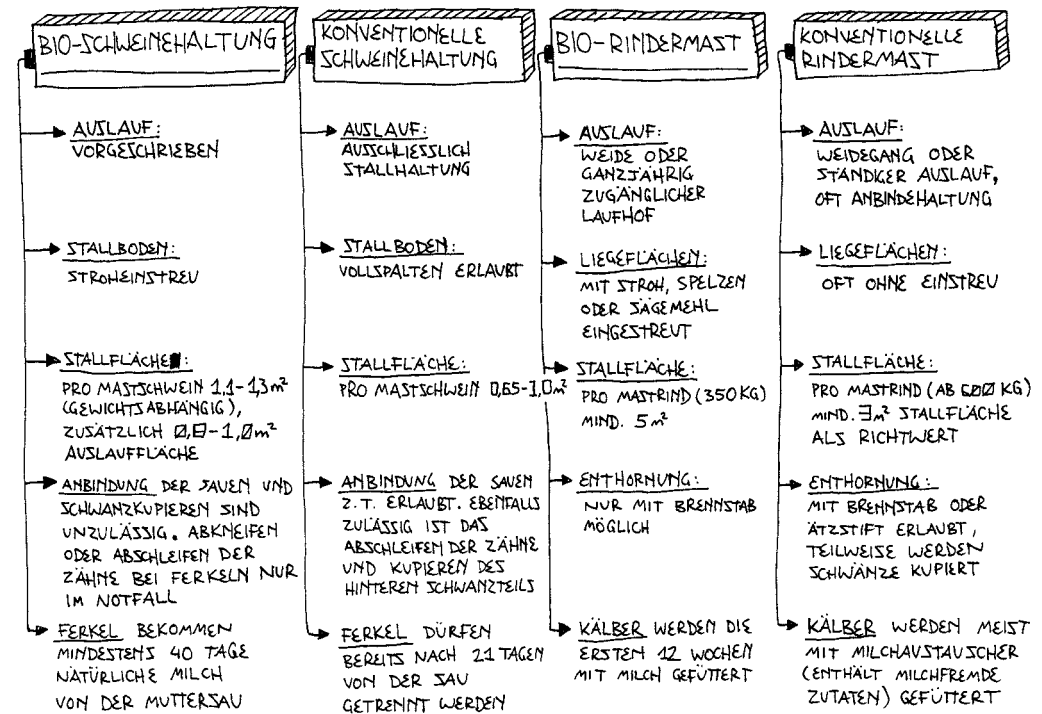 BIO-SCHWEINEHALTUNG
AUSLAUF:
VORGESCHRIEBEN
STALLBODEN:
STROHEINSTREU
STALLFLÄCHE:
PRO MASTSCHWEIN 1,1-1,3m²
(GEWICHTSABHÄNGIG),
ZUSÄTZLICH 0,8-1,0m²
AUSLAUFFLÄCHE
ANBINDUNG DER SAUEN UND
SCHWANZKUPIEREN SIND
UNZULÄSSIG. ABKNEIFEN
ODER ABSCHLEIFEN DER
ZÄHNE BEI FERKELN NUR
IM NOTFALL
FERKEL BEKOMMEN
MINDESTENS 40 TAGE
NATÜRLICHE MILCH
VON DER MUTTERSAU
KONVENTIONELLE
SCHWEINEHALTUNG
AUSLAUF:
AUSSCHLIESSLICH
STALLHALTUNG
STALLBODEN:
VOLLSPALTEN ERLAUBT
STALLFLÄCHE:
PRO MASTSCHWEIN 0,65-1,0m²
ANBINDUNG DER SAUEN
Z.T. ERLAUBT. EBENFALLS
ZULÄSSIG IST DAS
ABSCHLEIFEN DER ZÄHNE
UND KUPIEREN DES
HINTEREN SCHWANZTEILS
FERKEL DÜRFEN
BEREITS NACH 21 TAGEN
VON DER SAU
GETRENNT WERDEN
BIO-RINDERMAST
AUSLAUF:
WEIDE ODER
GANZJÄHRIG
ZUGÄNGLICHER
LAUFHOF
LIEGEFLÄCHEN:
MIT STROH, SPELZEN
ODER SÄGEMEHL
EINGESTREUT
STALLFLÄCHE:
PRO MASTRIND (350KG)
MIND. 5 m²
ENTHORNUNG:
NUR MIT BRENNSTAB
MÖGLICH
KÄLBER WERDEN DIE
ERSTEN 12 WOCHEN
MIT MILCH GEFÜTTERT
KONVENTIONELLE
RINDERMAST
AUSLAUF:
WEIDEGANG ODER
STÄNDIGER AUSLAUF,
OFT ANBINDEHALTUNG
LIEGEFLÄCHEN:
OFT OHNE EINSTREU
STALLFLÄCHE:
PRO MASTRIND (AB 600 KG)
MIND. 3m² STALLFLÄCHE
ALS RICHTWERT
ENTHORNUNG:
MIT BRENNSTAB ODER
ÄTZSTIFT ERLAUBT,
TEILWEISE WERDEN
SCHWÄNZE KUPIERT
KÄLBER WERDEN MEIST
MIT MILCHAUSTAUSCHER
(ENTHÄLT MILCHFREMDE
ZUTATEN) GEFÜTTERT